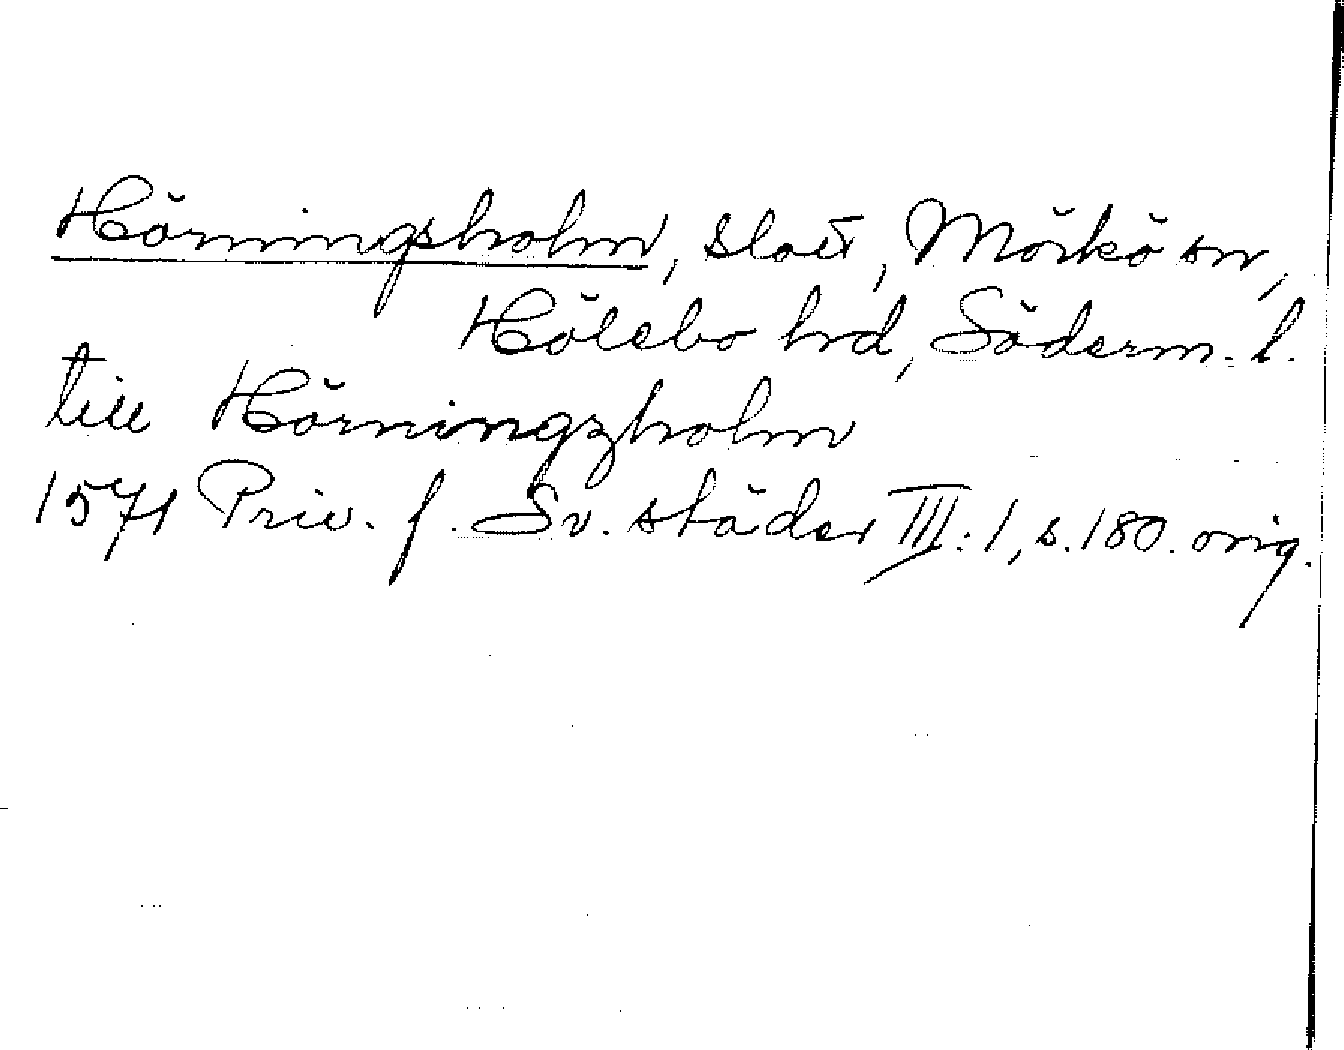 Hörningsholm, slott, Mörkö sn,
Hölebo hrd, Söderm. l.
till Hörningzholm
1571 Priv. f. Sv. städer III:1, s. 180. orig.